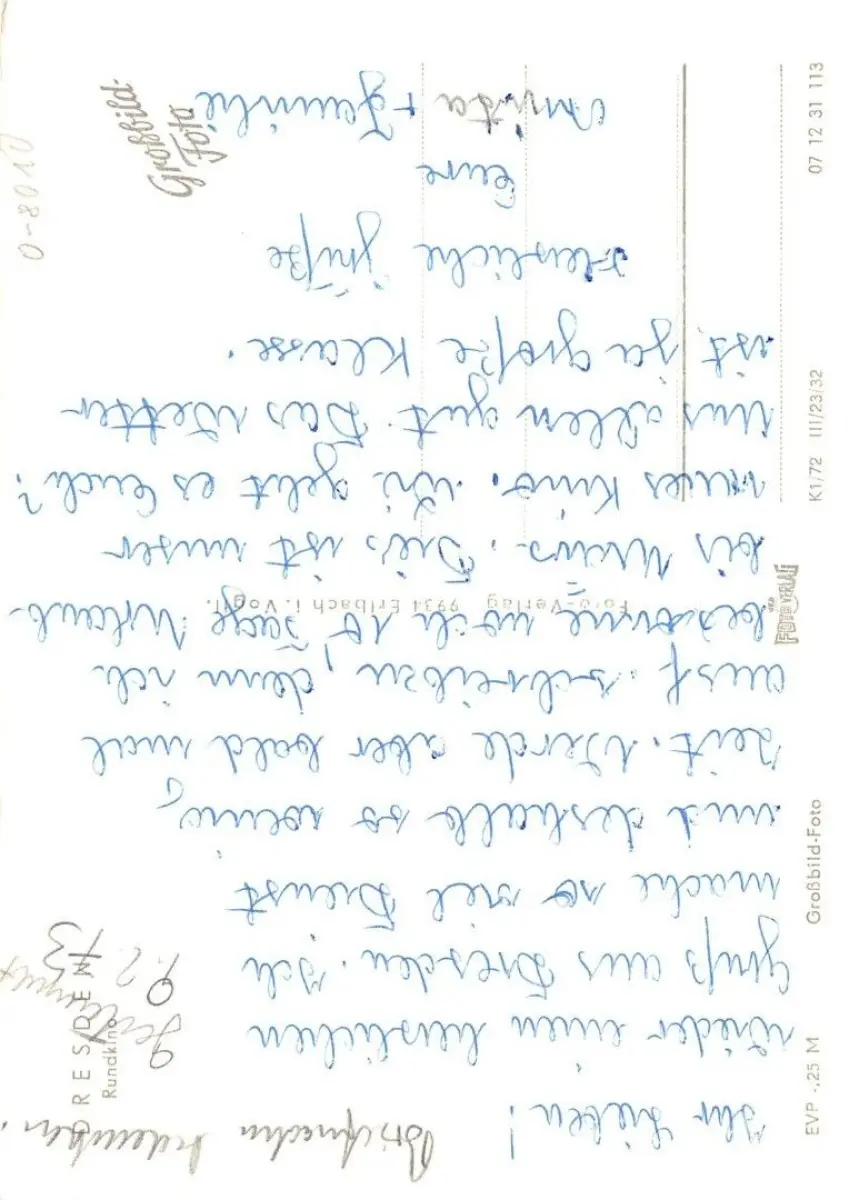 Ihr Lieben!
Briefmarken
wieder einen herzlichen
Gruß aus Dresden. Ich
mache so viel Dienst
und deshalb so wenig
Zeit. Werde aber bald mal
ausf. schreiben, denn ich
bekomme noch 10 Tage Urlaub
bis März. Dies ist unser
neues Kino. Wie geht es Euch?
Uns allen gut. Das Wetter
ist ja große Klasse.
Herzliche Grüße
Eure
+ Familie
DRESDEN
Rundkino
9.2.73
EVP -,25 M
Großbild-Foto
FOTO-VERLAG
K1/72 III/23/32
07 12 31 113
Foto-Verlag 9934 Erlbach i. Vogtl.
Großbild-
Foto
0-8010